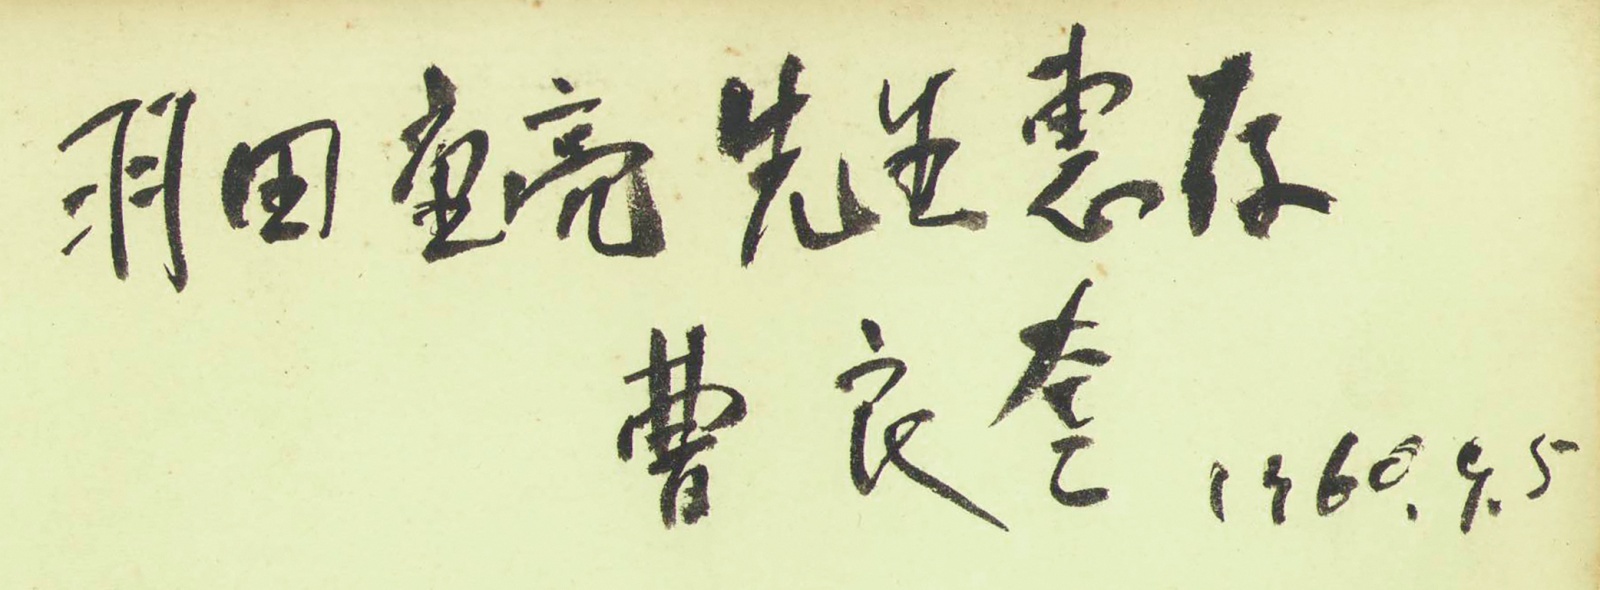 羽田童亮先生惠存
曹良奎
1960.9.5